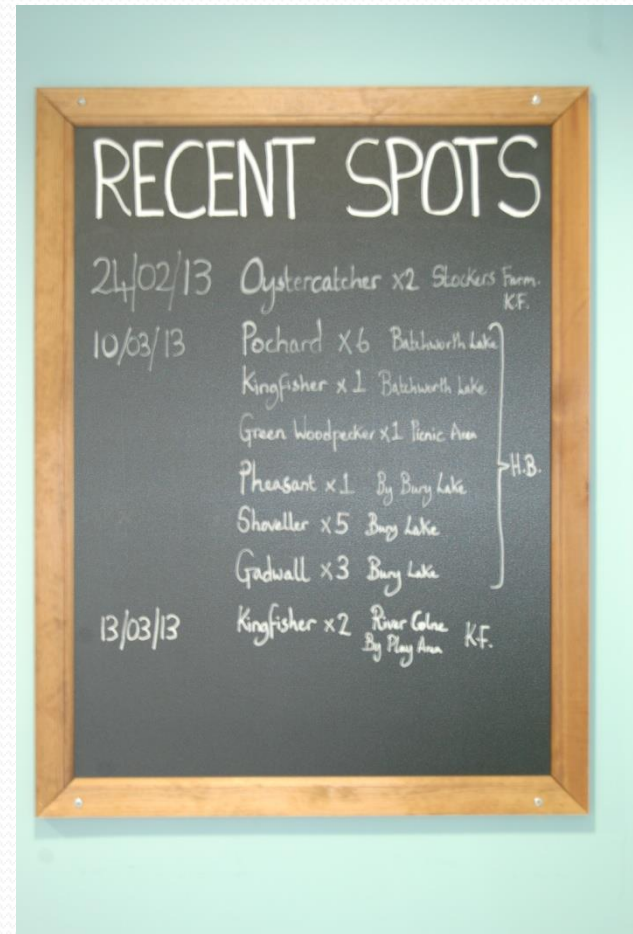 RECENT SPOTS
24/02/13 Oystercatcher x2 Stockers Farm.
K.F.
10/03/13 Pochard x6 Batchworth Lake
Kingfisher x1 Batchworth Lake
Green Woodpecker x1 Picnic Area
Pheasant x1 By Bury Lake
H.B.
Shoveller x5 Bury Lake
Gadwall x3 Bury Lake
13/03/13 Kingfisher x2 River Colne
By Play Area K.F.